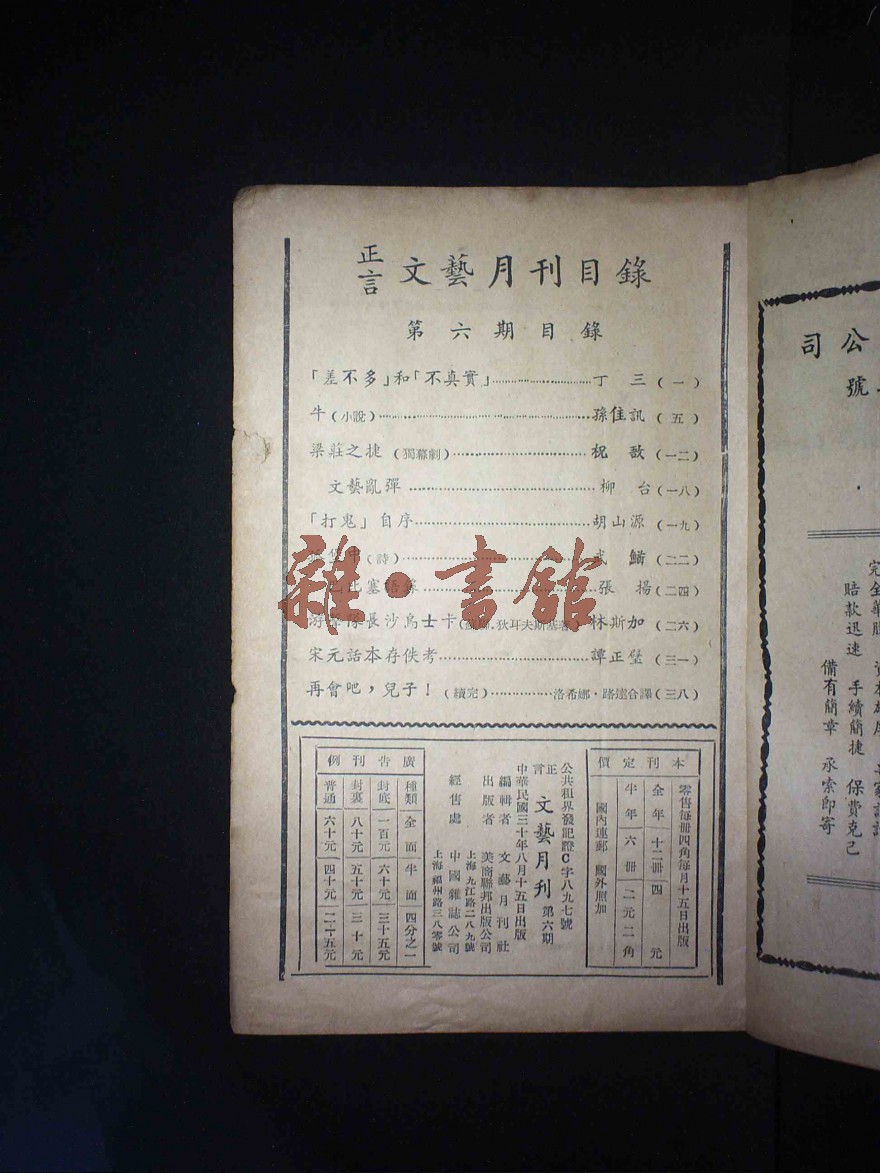 正言 文藝月刊目錄
第六期目錄
「差不多」和「不真實」……丁三(一)
牛(小說)……孫佳訊(五)
梁莊之捷(獨幕劇)……祝敔(一二)
文藝亂彈……柳台(一八)
「打鬼」自序……胡山源(一九)
(詩)……武(二二)
比塞……張揚(二四)
游擊隊長沙烏士卡(狄耳夫斯基著)林斯加(二六)
宋元話本存佚考……譚正璧(三一)
再會吧,兒子!(續完)……洛希娜·路達合譯(三八)
雜·書館
本刊定價
零售每冊四角每月十五日出版
全年 十二冊 四元
半年 六冊 二元二角
國內連郵 國外照加
公共租界登記證C字八九七號
正言 文藝月刊 第六期
中華民國三十年八月十五日出版
編輯者 文藝月刊社
出版者 美商聯邦出版公司
上海九江路二八九號
經售處 中國雜誌公司
上海福州路三八〇號
廣告刊例
種類 全面 半面 四分之一
封底 一百元 六十元 三十五元
封裏 八十元 五十元 三十元
普通 六十元 四十元 二十五元
公司
號
賠款迅速 手續簡捷 保費克己
備有簡章 承索即寄